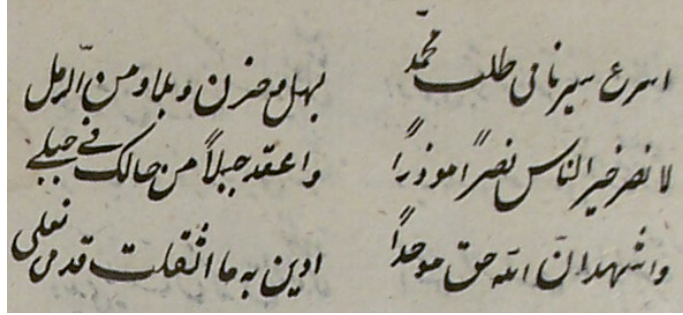 اسرع سیرنا فی طلب محمّد بسهل و حزن و بلاد من الرّمل
لا نصر خیر الناس نصراً موذراً واعقد حبلاً من حبالک فے حبلے
واشهد انّ الله حق موحداً ادین به ما اثقلت قدمی نعلی